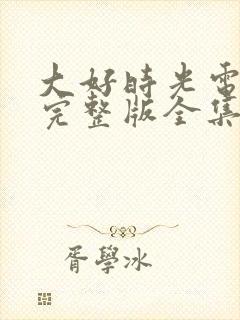 大好时光电
完整版全集
胥學冰